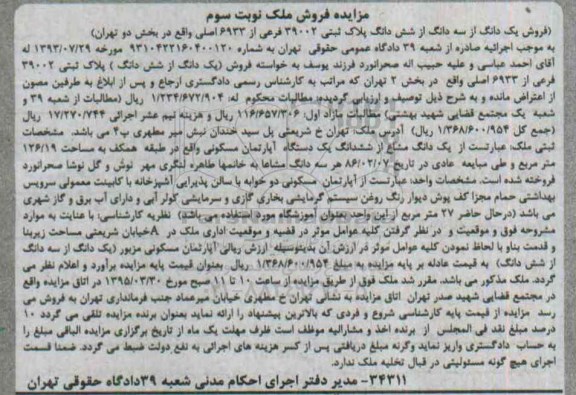 مزایده فروش ملک نوبت سوم
(فروش یک دانگ از سه دانگ از شش دانگ پلاک ثبتی ۳۹۰۰۲ فرعی از ۶۹۳۳ اصلی واقع در بخش دو تهران)
به موجب اجرائیه صادره از شعبه ۳۹ دادگاه عمومی حقوقی تهران به شماره ۹۳۱۰۴۲۲۱۶۴۰۰۱۲۰ مورخه ۱۳۹۳/۰۷/۲۹ له
آقای احمد عباسی و علیه حبیب اله صحرانورد فرزند یوسف به خواسته فروش (یک دانگ از شش دانگ) پلاک ثبتی ۳۹۰۰۲
فرعی از ۶۹۳۳ اصلی واقع در بخش ۲ تهران که مراتب به کارشناس رسمی دادگستری ارجاع و پس از ابلاغ به طرفین مصون
از اعتراض مانده و به شرح ذیل توصیف و ارزیابی گردیده مطالبات محکوم له: ۱/۲۳۴/۶۷۲/۹۰۴ ریال (مطالبات از شعبه ۳۹ و
شعبه یک مجتمع قضایی شهید بهشتی) مطالبات مازاد اول: ۱۱۶/۶۵۷/۳۰۶ ریال و هزینه نیم عشر اجرائی ۱۷/۲۷۰/۷۴۴
(جمع کل ۱/۳۶۸/۶۰۰/۹۵۴ ریال) آدرس ملک: تهران خ شریعتی پل سید خندان نبش میر مطهری پ۲ می باشد. مشخصات
ثبتی ملک: عبارتست از یک دانگ مشاع از ششدانگ یک دستگاه آپارتمان مسکونی واقع در طبقه همکف به مساحت ۱۲۶/۱۹
متر مربع و طی مبایعه عادی در تاریخ ۸۶/۰۲/۰۷ هر سه دانگ مشاعا به خانمها طاهره لنگری مهر نوش و گل نوشا صحرانورد
فروخته شده است. مشخصات واحد: عبارتست از آپارتمان مسکونی دو خوابه با سالن پذیرایی آشپزخانه با کابینت معمولی سرویس
بهداشتی حمام مجزا کف پوش دیوار رنگ روغن سیستم گرمایشی بخاری گازی و سرمایشی کولر آبی و دارای آب برق و گاز شهری
می باشد (درحال حاضر ۲۷ متر مربع از این واحد بعنوان آموزشگاه مورد استفاده می باشد) نظریه کارشناسی: با عنایت به موارد
مشروحه فوق و موقعیت و در نظر گرفتن کلیه عوامل موثر در قضیه و موقعیت اداری ملک در خیابان شریعتی مساحت زیربنا
و قدمت بناو با لحاظ نمودن کلیه عوامل موثر در ارزش آن بدینوسیله ارزش ریالی آپارتمان مسکونی مزبور (یک دانگ از سه دانگ
از شش دانگ) به قیمت عادله بر پایه مزایده به مبلغ ۱/۳۶۸/۶۰۰/۹۵۴ ریال بعنوان قیمت پایه مزایده برآورد و اعلام نظر می
گردد. ملک مذکور می باشد. مقرر شد ملک فوق از طریق مزایده از ساعت ۱۰ تا ۱۱ صبح مورخ ۱۳۹۵/۰۳/۳۰ در اتاق مزایده واقع
در مجتمع قضایی شهید صدر تهران اتاق مزایده به نشانی تهران خ مطهری خیابان میرعماد جنب فرمانداری تهران به فروش می
رسد مزایده از قیمت پایه کارشناسی شروع و فردی که بالاترین پیشنهاد را ارائه نماید بعنوان برنده مزایده تلقی می گردد ۱۰
درصد مبلغ نقد فی المجلس از برنده اخذ و مشارالیه موظف است ظرف مهلت یک ماه از تاریخ برگزاری مزایده الباقی مبلغ را
به حساب دادگستری واریز نماید وگرنه مبلغ دریافتی پس از کسر هزینه های اجرائی به نفع دولت ضبط می گردد. ضمنا قسمت
اجرای هیچ گونه مسئولیتی در قبال تخلیه ملک ندارد.
۳۴۳۱۱- مدیر دفتر اجرای احکام مدنی شعبه ۳۹دادگاه حقوقی تهران